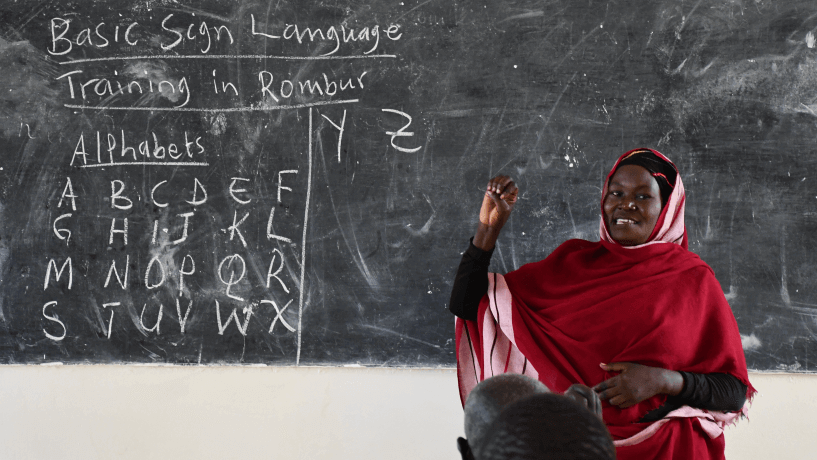 Basic Sign Language
Training in Rombur
Alphabets
A B C D E F
G H I J K L
M N O P Q R
S T U V W X
Y Z